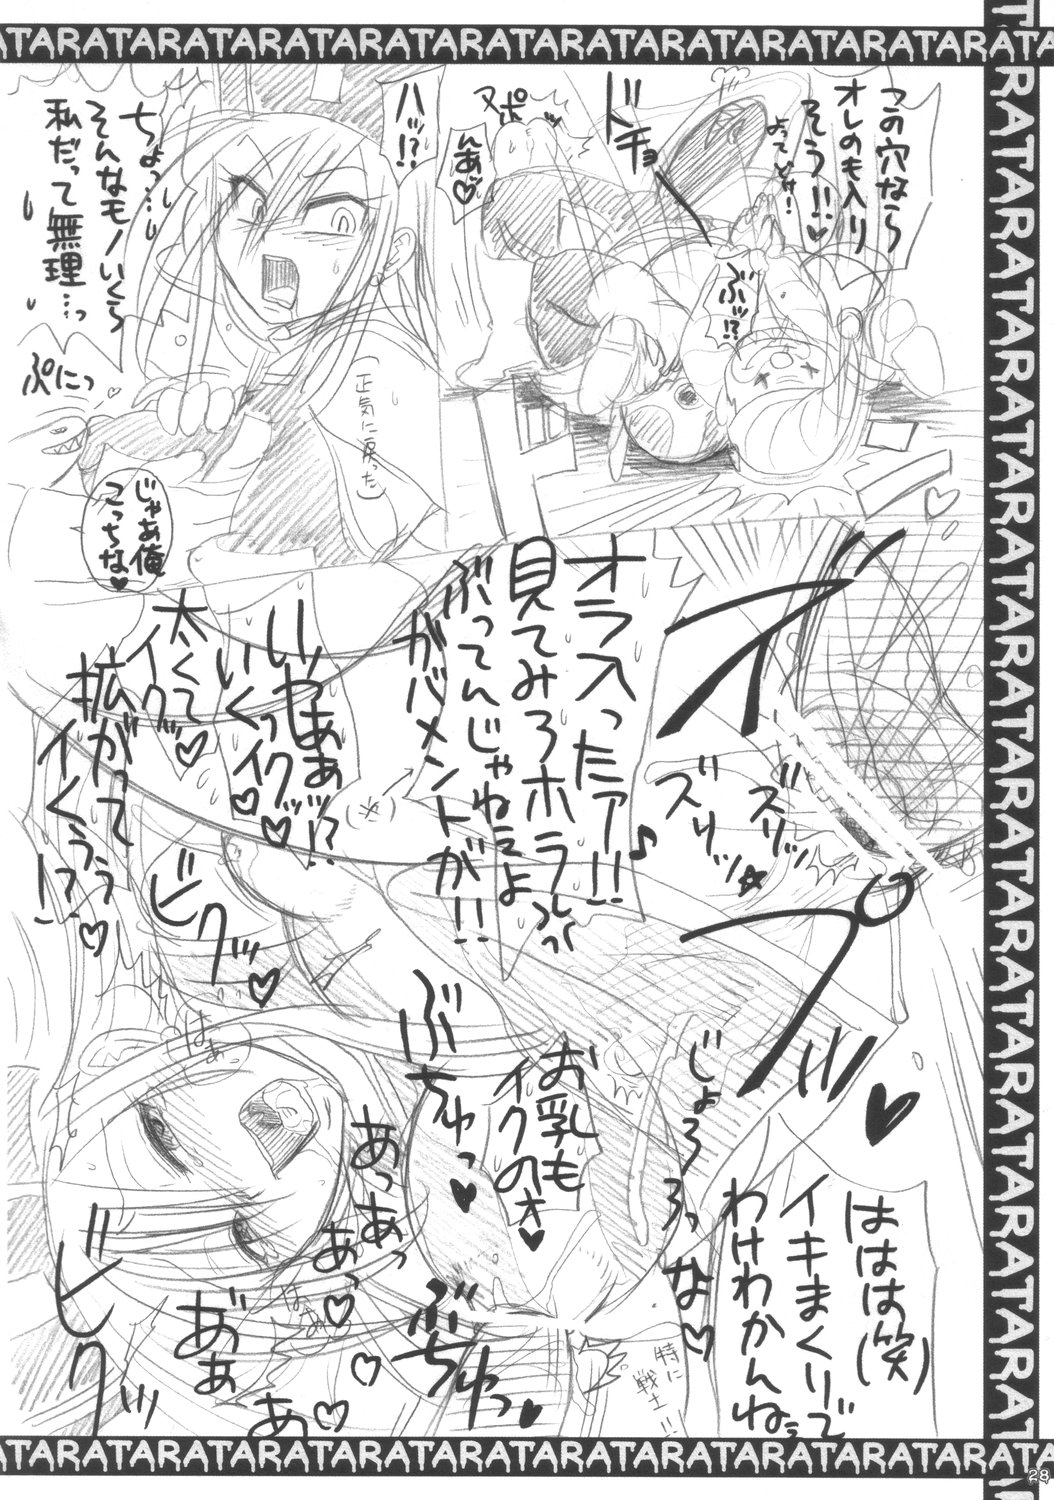 この穴なら
オレのも入り
そう!!♥
よってどけ!
ドチョ
ぶッ!?
ヌポッ
んあッ♥
ハッ!?
ちょっ…
そんなモノいくら
私だって無理…っ
ぷにっ
(正気に戻った)
じゃあ俺
こっちな♥
オラ入ったァ!!♪
見てみろホラ
ぶってんじゃねェよ
ガバメントが!!
ズリッ
ズリッ☆
いやああッ!?
いくっイクッ♥
太くて
イグッ♥
拡がって
イくぅぅ!?♥
ビクッ♥
はぁ
ぶちゅっ♥
お乳も
イクのォ♥
じょろろろっ
な♥
ははは(笑)
イキまくりで
わけわかんねェ
特に
戦士!!
あっあっ
あっ♥
ビクッ
あ゛ぁあ♥
ぶちゅっ♥
RATARATARATARATARATARATARATARATARATARATA
28